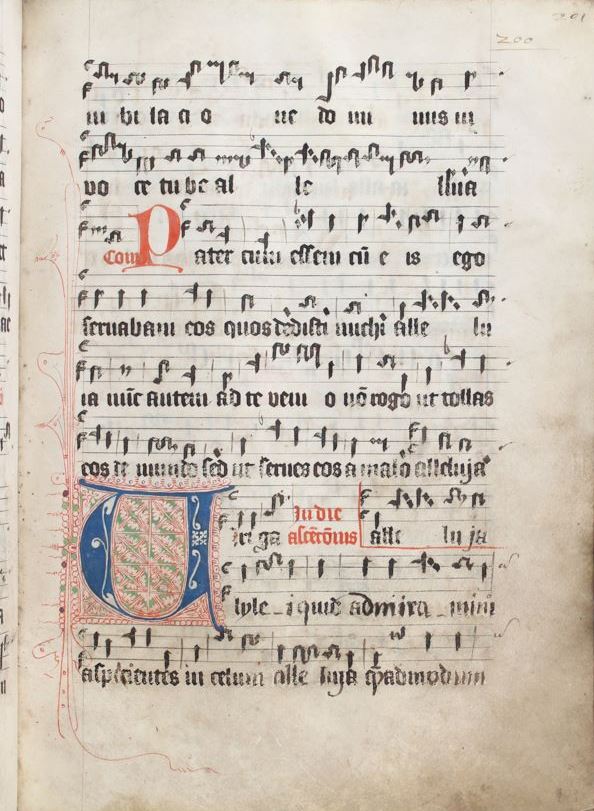 201
200
iu bi la ci o ne do mi mus in
vo ce tu be al le luia
Com Pater cum essem cū e is ego
seruabam eos quos dedisti michi alle lu
ia nūc autem ad te veni o nō rogo ut tollas
eos de mundo sed ut serues eos a malo alleluja
In die
iri ga ascēcōnis alle lu ja
lyle iquid admira mini
aspicientes in celum alle luja qadmodum